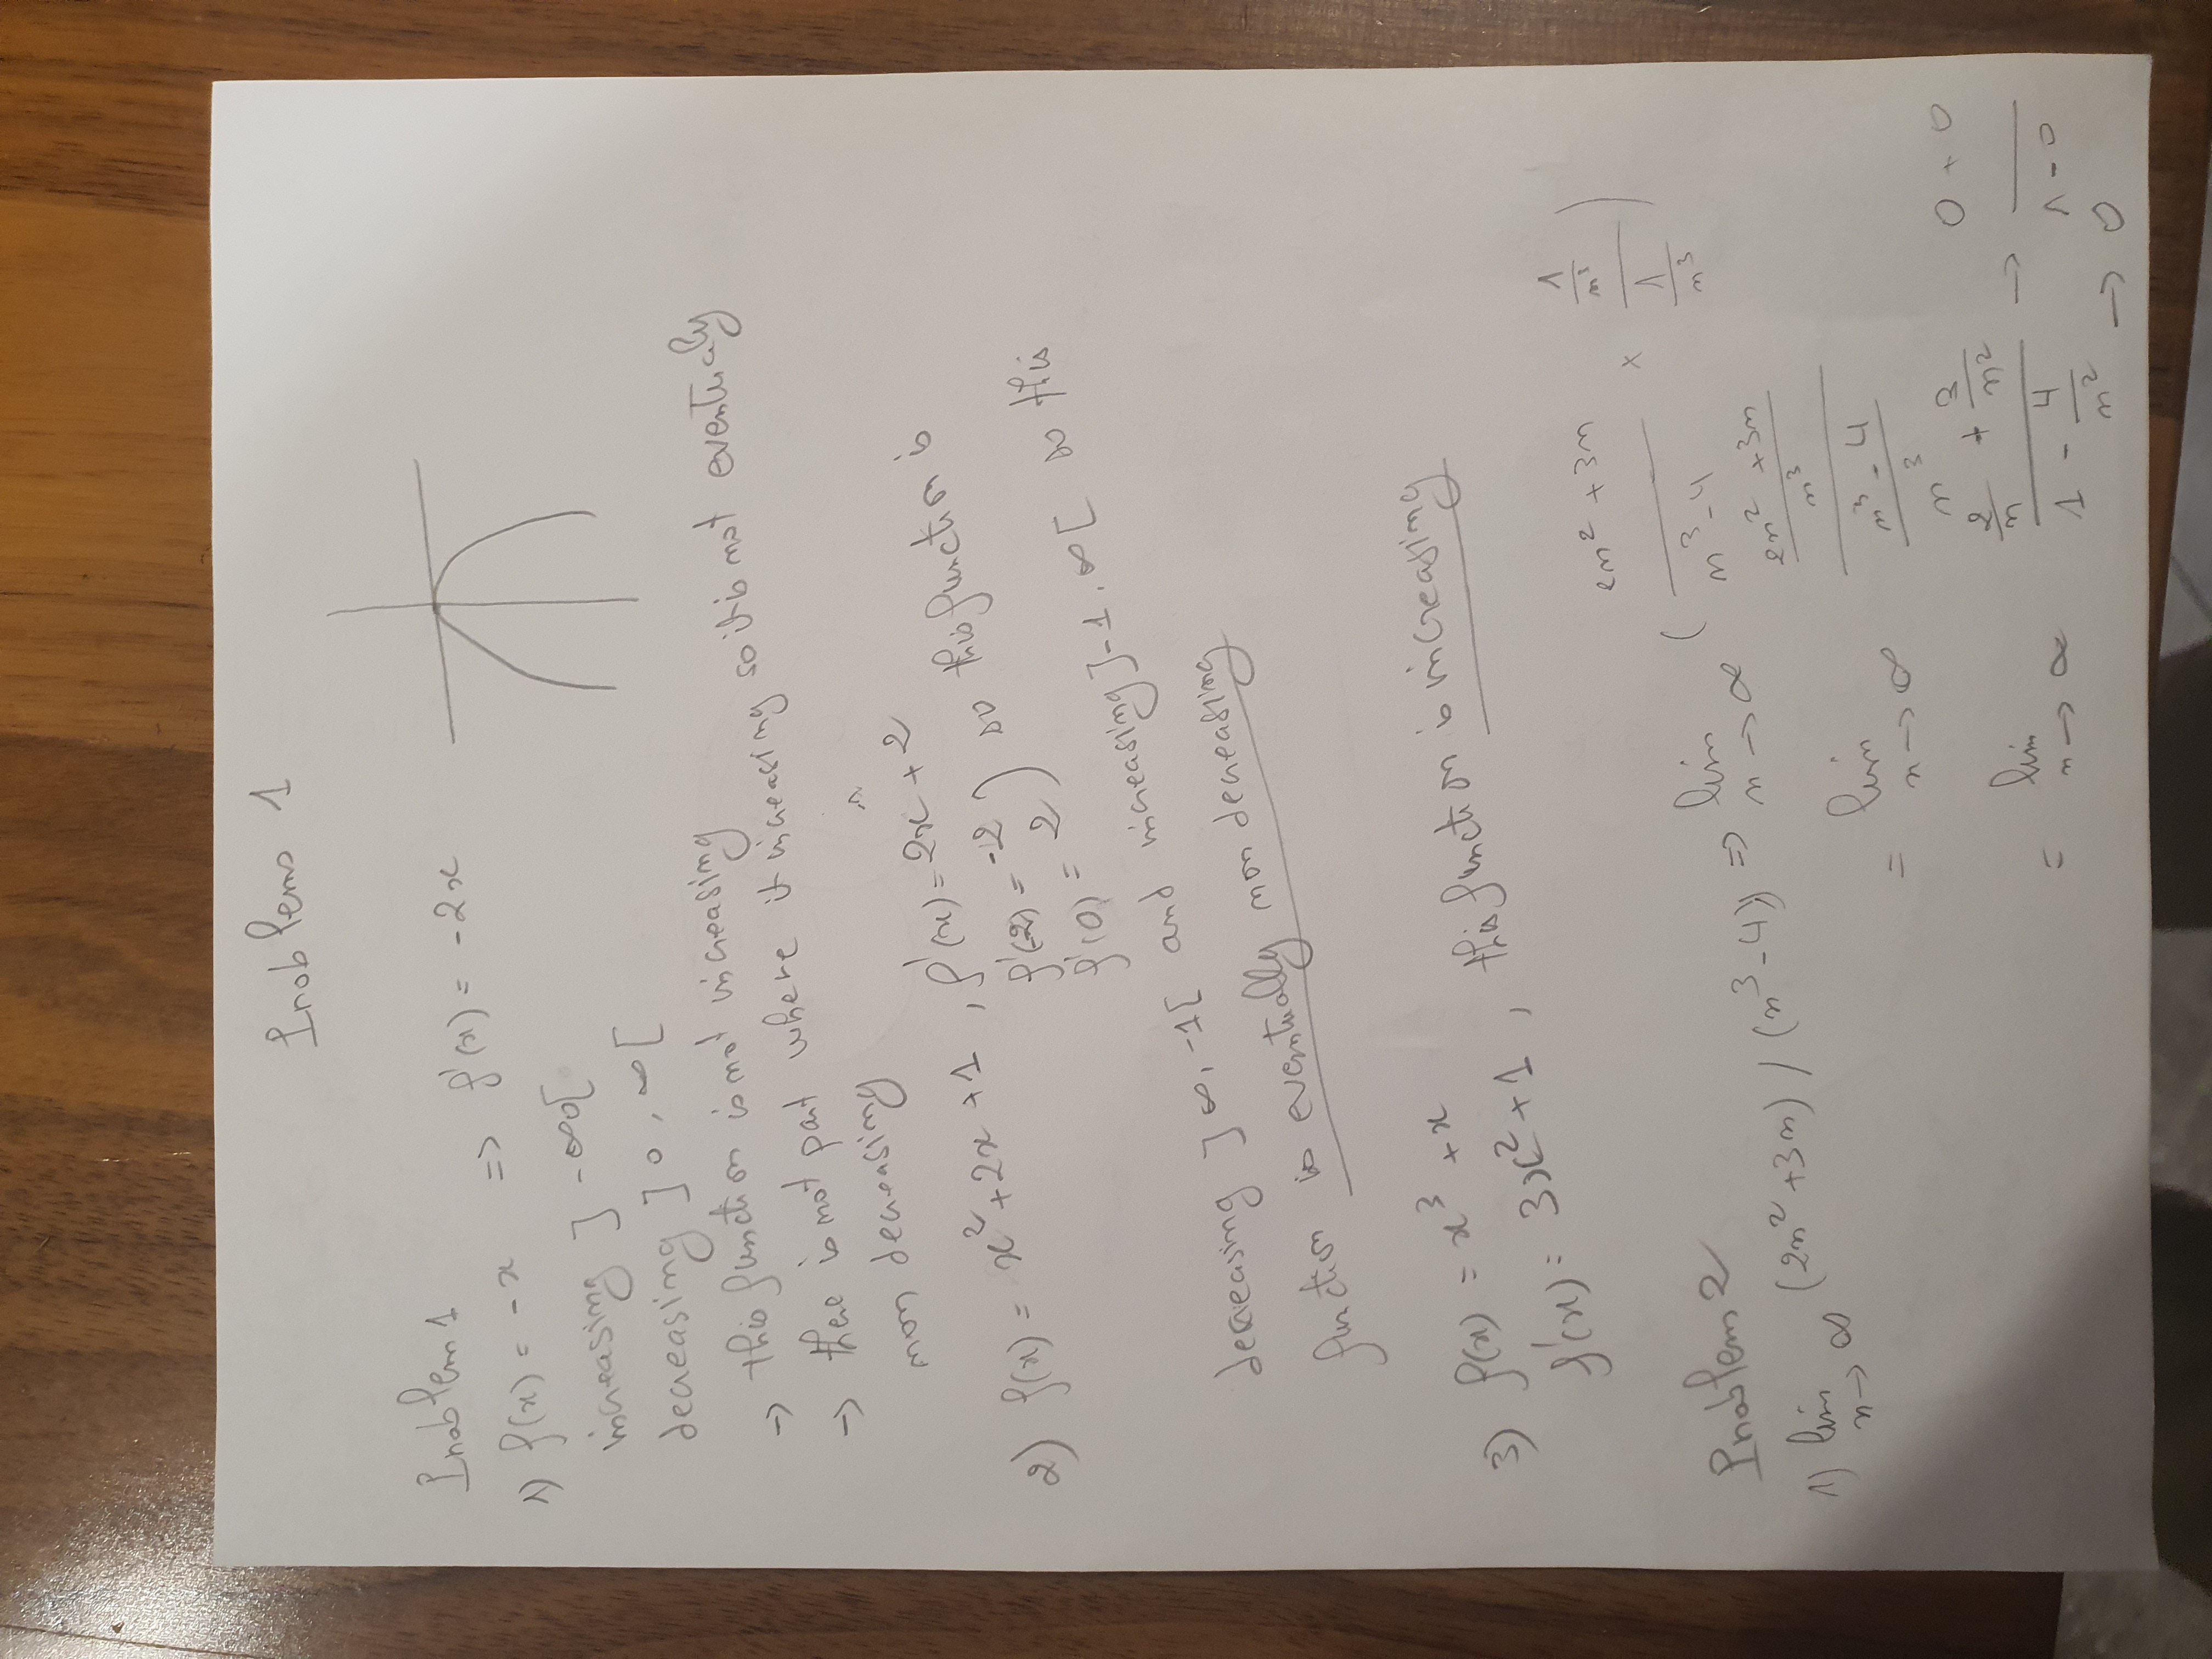 Problems 1
Problem 1
1) f(x) = -x => f'(x) = -2x
increasing ]-∞0[
decreasing ]0, ∞[
→ this function is not increasing
→ there is not part where it increasing so it is not eventualy
non decreasing
2) f(x) = x² + 2x + 1 , f'(x) = 2x + 2
f'(-2) = -2
f'(0) = 2 ) so this function is
decreasing ]∞, -1[ and increasing ]-1, ∞[ so this
function is eventually non decreasing
3) f(x) = x³ + x
f'(x) = 3x² + 1 , this function is increasing
Problem 2
1) lim n→∞ (2n² + 3n) / (n³ - 4)) => lim n→∞ ( (2n² + 3n)/(n³ - 4) × (1/n³)/(1/n³) )
= lim n→∞ ((2n² + 3n)/n³)/((n³ - 4)/n³)
= lim n→∞ (2/n + 3/n²)/(1 - 4/n²) → (0 + 0)/(1 - 0)
→ 0